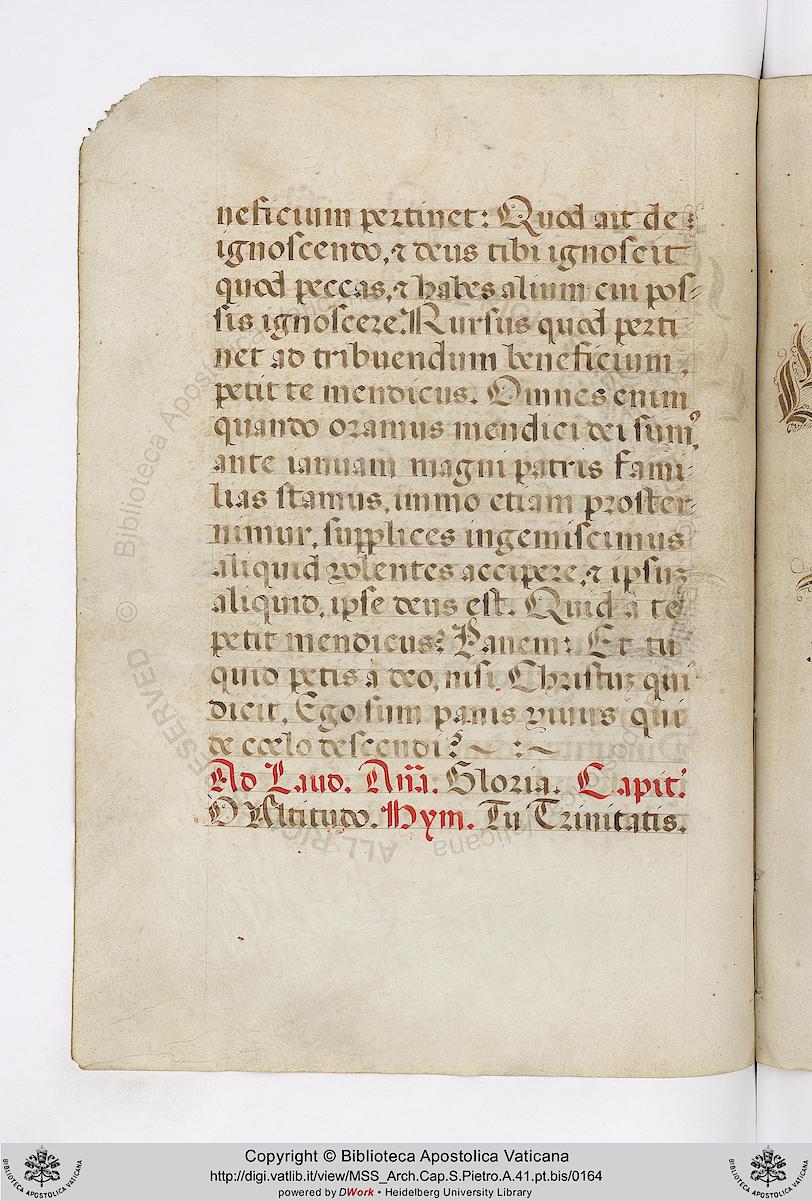 neficium pertinet: Quod ait de
ignoscendo, ⁊ deus tibi ignoscit
quod peccas, ⁊ habes alium cui pos-
sis ignoscere. Rursus quod perti-
net ad tribuendum beneficium,
petit te mendicus. Omnes enim
quando oramus mendici dei sum᾽,
ante ianuam magni patris fami-
lias stamus, immo etiam proster-
nimur, supplices ingemiscimus
aliquid volentes accipere, ⁊ ipsuz
aliquid, ipse deus est. Quid a te
petit mendicus? Panem: Et tu
quid petis a deo, nisi Christuz qui
dicit, Ego sum panis vivus qui
de cœlo descendi? ~ : ~
Ad Laud. Añã. Gloria. Capit.᾽
O Altitudo. Hym. Tu Trinitatis.
© Biblioteca Apostolica Vaticana
ALL RIGHTS RESERVED
Copyright © Biblioteca Apostolica Vaticana
http://digi.vatlib.it/view/MSS_Arch.Cap.S.Pietro.A.41.pt.bis/0164
powered by DWork • Heidelberg University Library
BIBLIOTECA APOSTOLICA VATICANA
BIBLIOTECA APOSTOLICA VATICANA